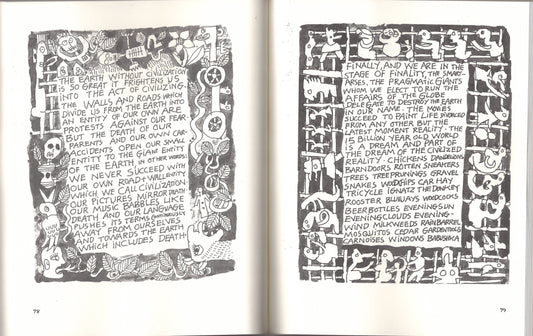 THE EARTH WITHOUT CIVILIZATION
IS SO GREAT IT FRIGHTENS US
INTO THE ACT OF CIVILIZING.
THE WALLS AND ROADS WHICH
DIVIDE US FROM THE EARTH INTO
AN ENTITY OF OUR OWN ARE
PROTESTS AGAINST OUR FEAR.
BUT THE DEATH OF OUR
PARENTS AND OUR OWN CAR
ACCIDENTS OPEN OUR SMALL
ENTITY TO THE GIANT ENTITY
OF THE EARTH. IN OTHER WORDS:
WE NEVER SUCCEED WITH
OUR OWN ROAD & WALL ENTITY
WHICH WE CALL CIVILIZATION.
OUR PICTURES MIRROR DEATH
OUR MUSIC BABBLES
DEATH AND OUR LANGUAGE
PUSHES ITS TERMS CONTINUOUSLY
AWAY FROM OURSELVES
AND TOWARDS THE EARTH
WHICH INCLUDES DEATH
78
FINALLY, AND WE ARE IN THE
STAGE OF FINALITY, THE SMART-
ARSES, THE PRAGMATIC GIANTS
WHOM WE ELECT TO RUN THE
AFFAIRS OF THE GLOBE
DELEGATE TO DESTROY THE EARTH
IN OUR NAME. THE MOVIES
SUCCEED TO PAINT LIFE DIVORCED
FROM ANY OTHER BUT THE
LATEST MOMENT REALITY. THE
15 BILLION YEAR OLD WORLD
IS A DREAM AND PART OF
THE DREAM OF THE CIVILIZED
REALITY. CHICKENS DANDELIONS
BARNDOORS ROTTEN SNEAKERS
TREES TREEPRUNINGS GRAVEL
SNAKES WOODCHIPS CAR HAY
TRICYCLE IGNATZ THE DONKEY
ROOSTER BLUEJAYS WOODCOCKS
BEERBOTTLES EVENINGSUN
EVENINGCLOUDS EVENING-
WIND MILKWEEDS RAINBARREL
MOSQUITOS CEDAR GARDENTOOLS
WINDOWS BABUSHKA
79